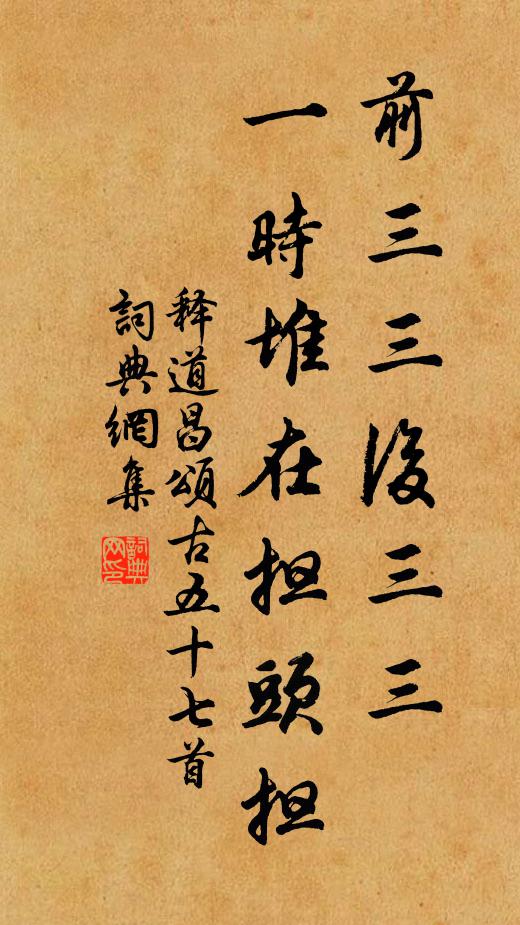 前三三後三三
一時堆在担頭担
释道昌頌古五十七首
詞典網集
詞典網印